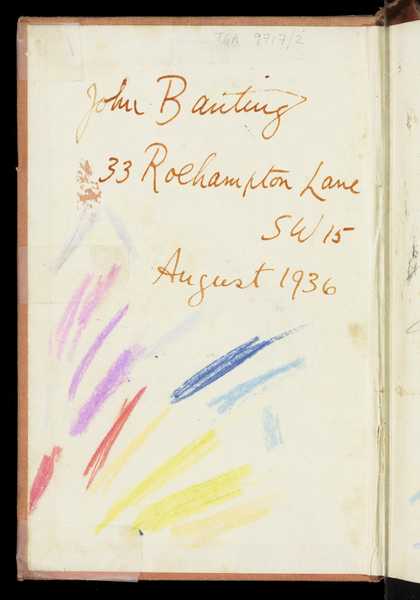 TGA 9717/2
John Banting
33 Roehampton Lane
SW 15
August 1936